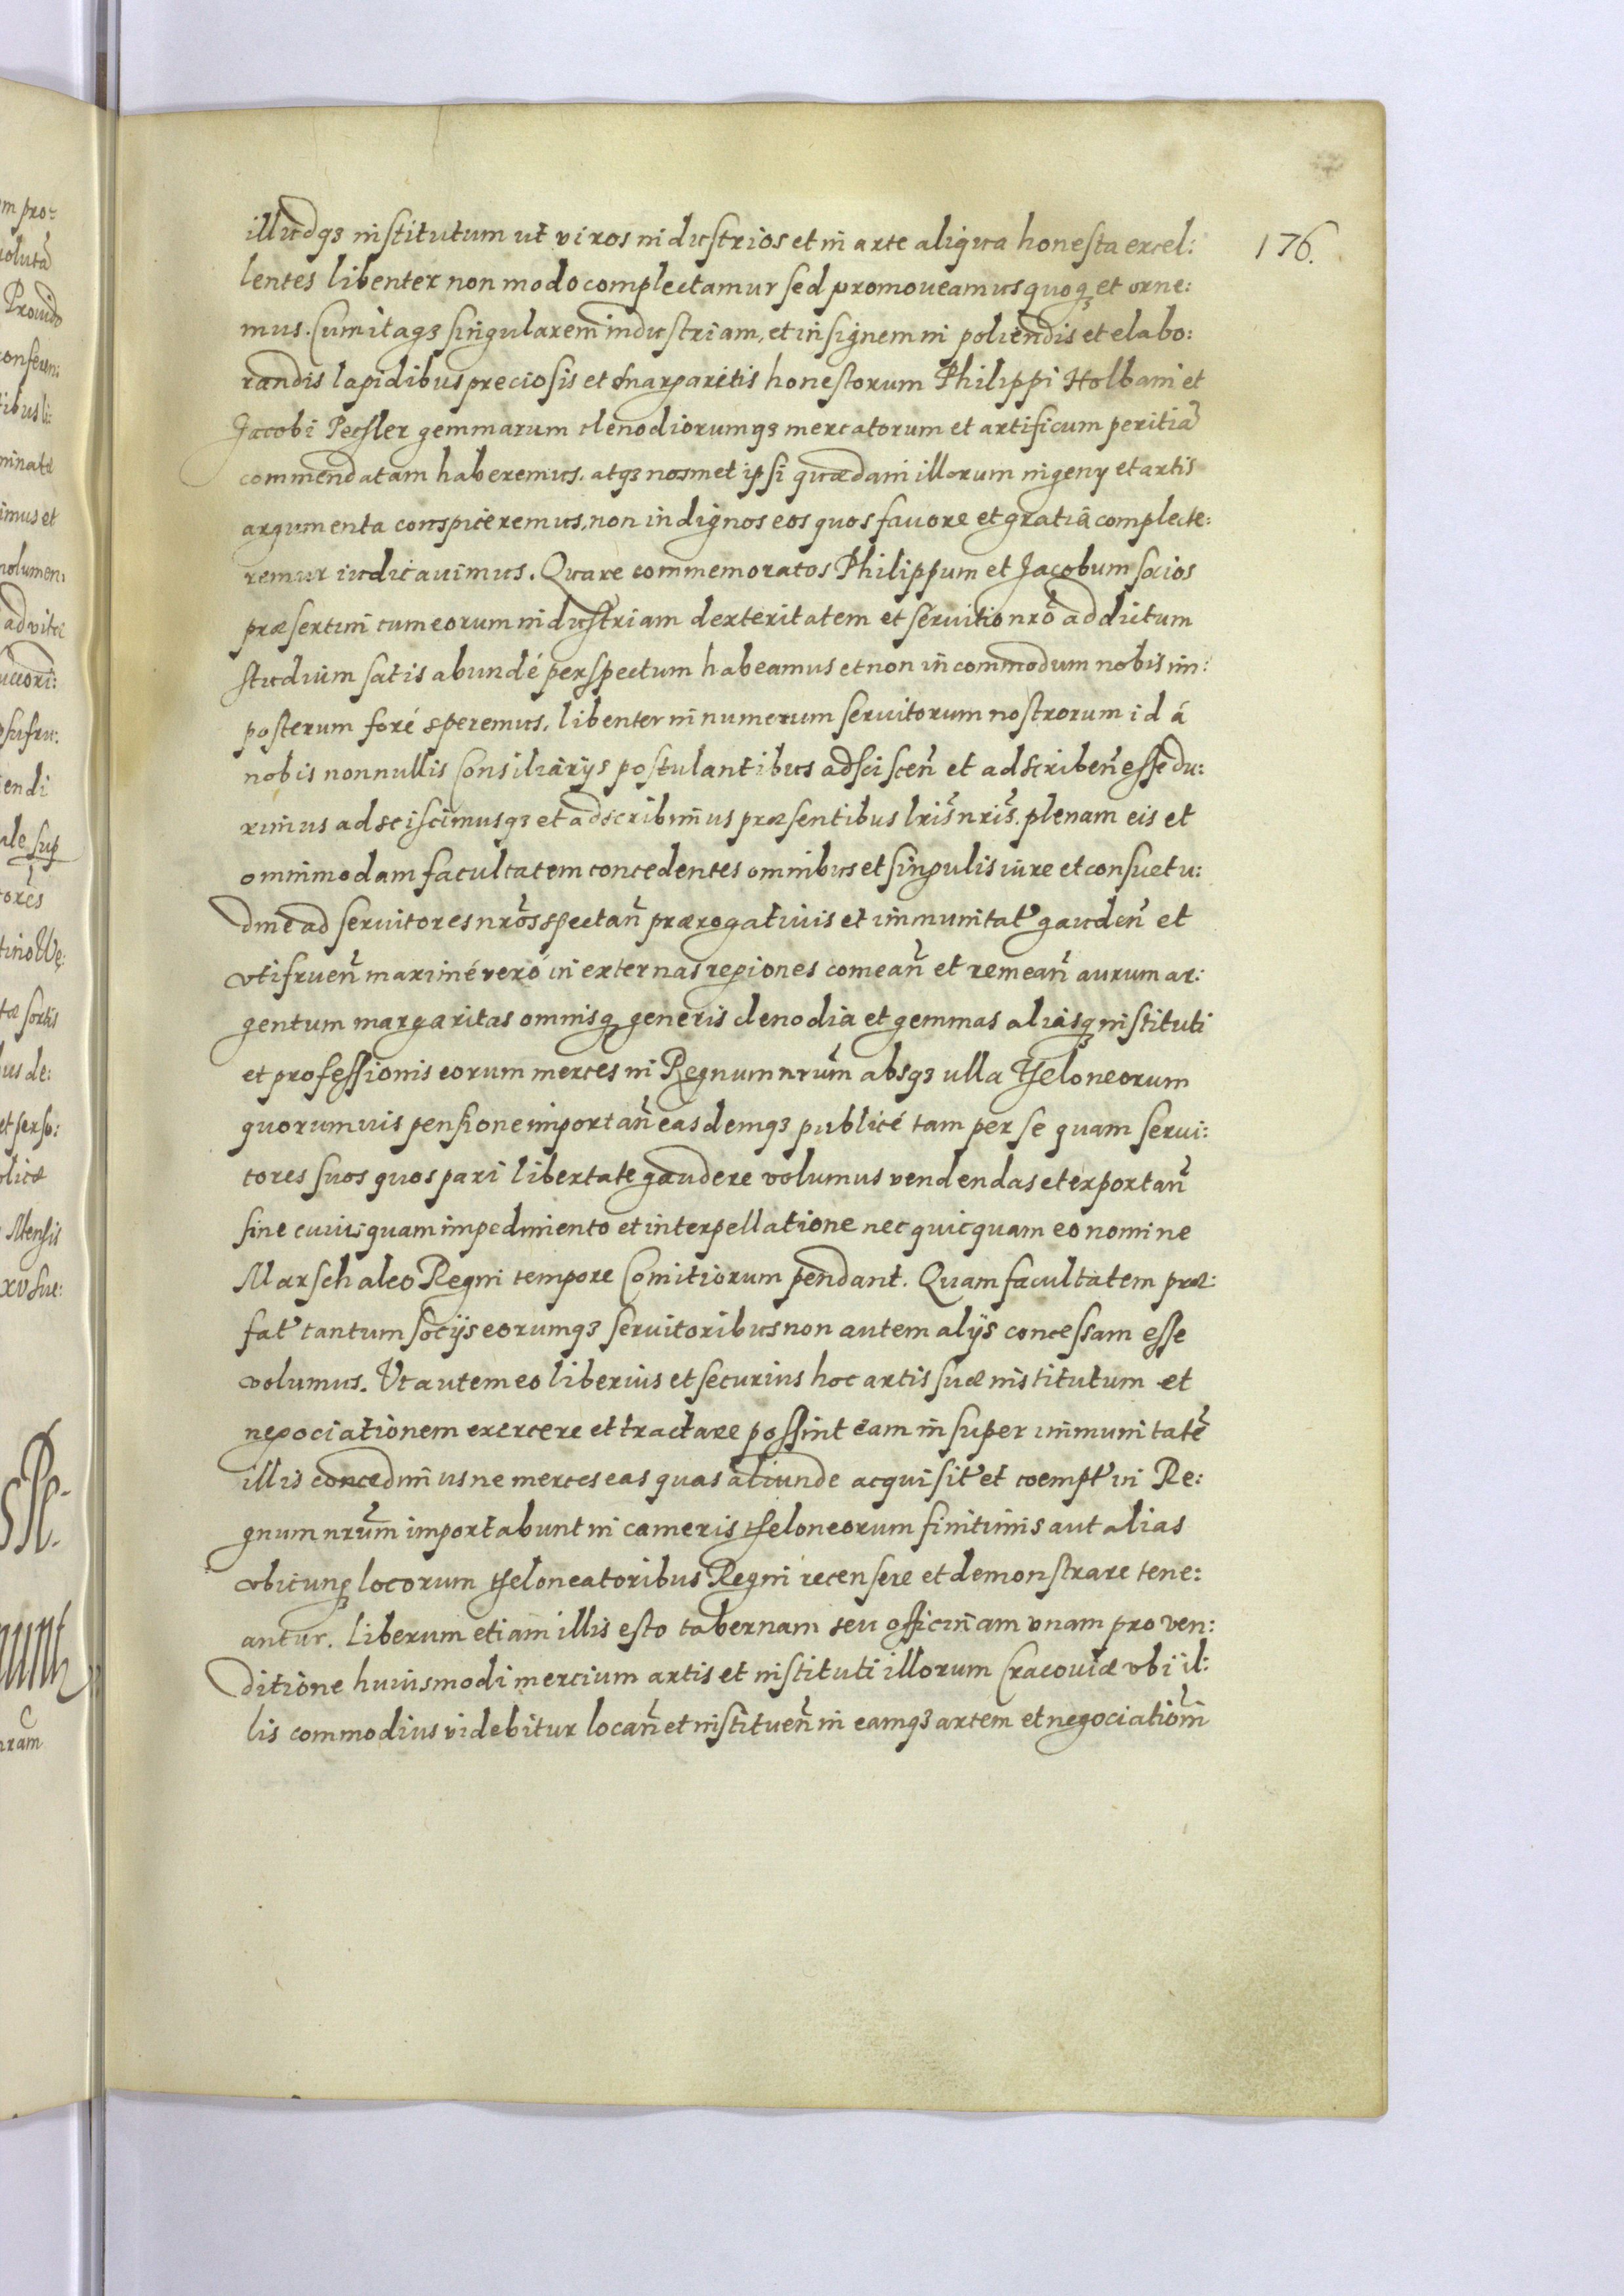 176.
illudq3 institutum ut viros industrios et in arte aliqua honesta excel:
lentes libenter non modo complectamur sed promoveamus quoq3 et orne:
mus. Cum itaq3 singularem industriam, et insignem in poliendis et elabo:
randis lapidibus preciosis et margaritis honestorum Philippi Holbani et
Jacobi Pesler gemmarum clenodiorumq3 mercatorum et artificum peritiã
commendatam haberemus. atq3 nosmet ipsi quædam illorum ingenÿ et artis
argumenta conspiceremus, non indignos eos quos favore et gratia complecte:
remur iudicavimus. Quare commemoratos Philippum et Jacobum socios
præsertim cum eorum industriam dexteritatem et servitio nro͂ addictum
studium satis abundé perspectum habeamus et non incommodum nobis im:
posterum foré speremus. libenter in numerum servitorum nostrorum id á
nobis nonnullis Consiliarijs postulantibus adsciscen͂ et adscriben͂ esse du:
ximus adsciscimusq3 et adscribimus præsentibus lris͂ nris͂. plenam eis et
omnimodam facultatem concedentes omnibus et singulis iure et consuetu:
dine ad servitores nro͂s spectan͂ prærogativis et immunitat͂ gauden͂ et
utifruen͂ maximé veró in externas regiones comean͂ et remean͂ aurum ar:
gentum margaritas omnisq3 generis clenodia et gemmas aliasq3 instituti
et professionis eorum merces in Regnum nru͂m absq3 ulla theloneorum
quorumvis pensione importan͂ easdemq3 publicé tam per se quam servi:
tores suos quos pari libertate gaudere volumus vendendas et exportan͂
sine cuiusquam impedimento et interpellatione nec quicquam eo nomine
Marschalco Regni tempore Comitiorum pendant. Quam facultatem præ:
fat͂ tantum socijs eorumq3 servitoribus non autem alijs concessam esse
volumus. Ut autem eo liberius et securius hoc artis suæ institutum et
negociationem exercere et tractare possint eam insuper immunitate͂
illis concedimus ne merces eas quas aliunde acquisit͂ et coempt͂ in Re:
gnum nru͂m importabunt in cameris theloneorum finitimis aut alias
ubicunq3 locorum theloneatoribus Regni recensere et demonstrare tene:
antur. Liberum etiam illis esto tabernam seu officinam unam pro ven:
ditione huiusmodi mercium artis et instituti illorum Cracoviæ ubi il:
lis commodius videbitur locan͂ et instituen͂ in eamq3 artem et negociatio͂m